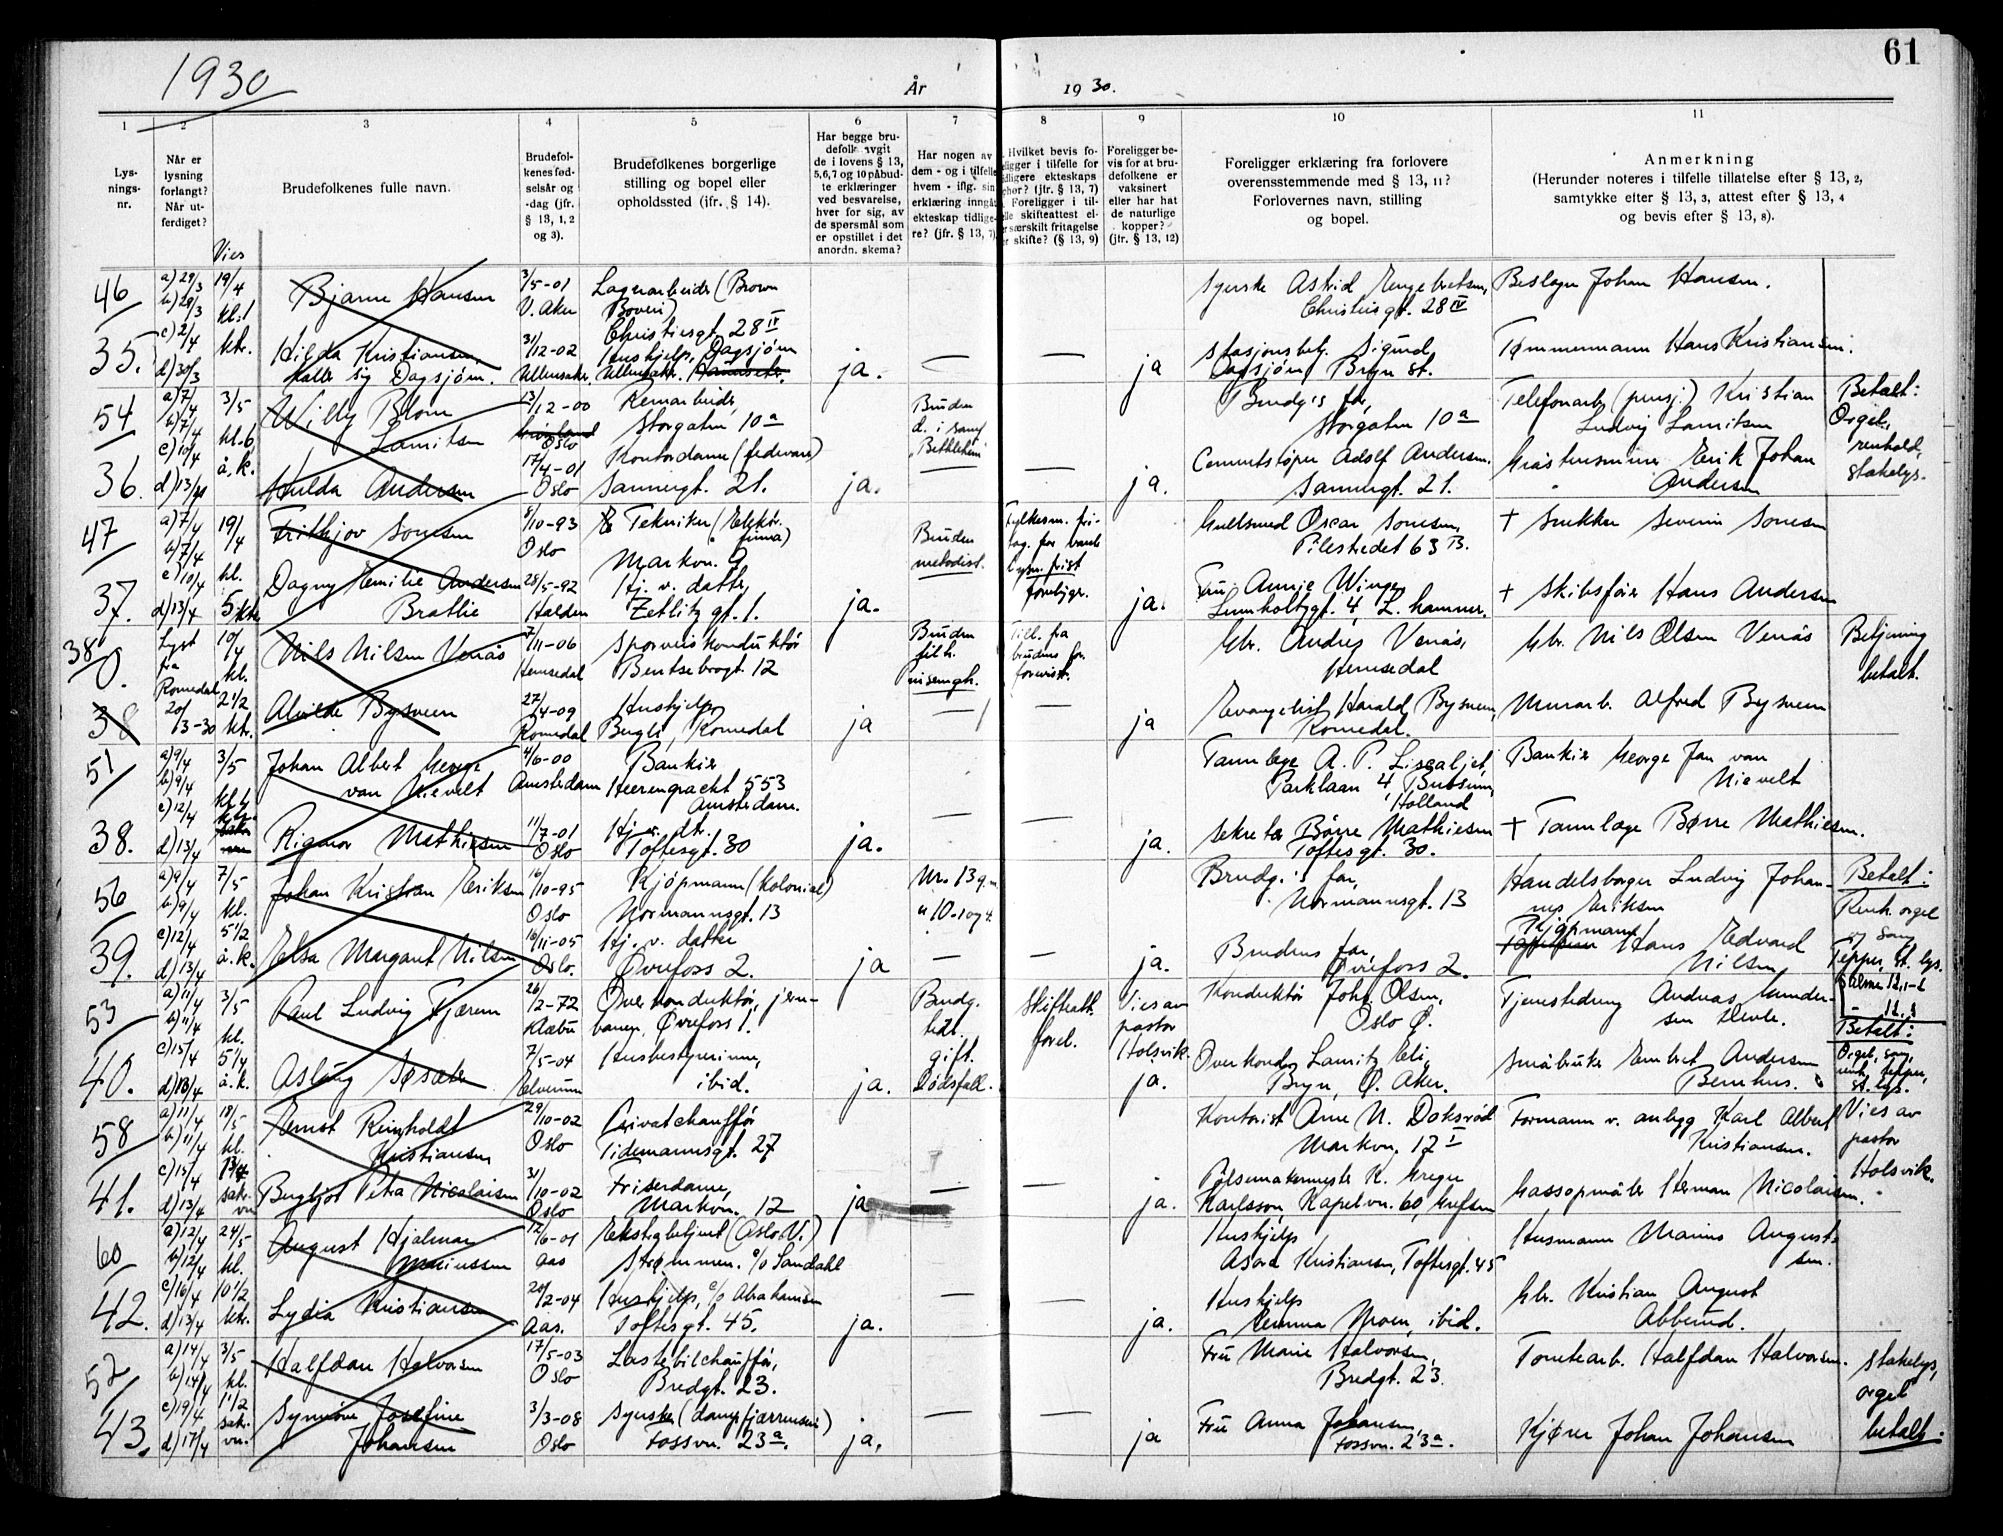 61
1930
År
1930.
1
2
3
4
5
6
7
8
9
10
11
Lys-
nings-
nr.
Når er
lysning
forlangt?
Når ut-
ferdiget?
Vies
Brudefolkenes fulle navn.
Brudefol-
kenes fød-
selsår og
-dag (jfr.
§ 13, 1, 2
og 3).
Brudefolkenes borgerlige
stilling og bopel eller
opholdssted (jfr. § 14).
Har begge bru-
defolk avgit
de i lovens § 13,
5,6,7 og 10 påbud-
te erklæringer
ved besvarelse,
hver for sig, av
de spørsmål som
er opstillet i det
anordn. skema?
Har nogen av
dem - og i tilfelle
hvem - iflg. sin
erklæring inngåt
ekteskap tidlige-
re? (jfr. § 13, 7)
Hvilket bevis fo-
religger i tilfelle for
tidligere ekteskaps
ophør? (jfr. § 13, 7)
Foreligger i til-
felle skifteattest el-
særskilt fritagelse
skifte? (§ 13, 9)
Foreligger be-
vis for at bru-
defolkene er
vaksinert
eller har hat
de naturlige
kopper?
(jfr. § 13, 12)
Foreligger erklæring fra forlovere
overensstemmende med § 13, 11?
Forlovernes navn, stilling
og bopel.
Anmerkning
(Herunder noteres i tilfelle tillatelse efter § 13, 2,
samtykke efter § 13, 3, attest efter § 13, 4
og bevis efter § 13, 8).
46
35.
a) 29/3
b) 29/3
c) 2/4
d) 30/3
19/4
kl. 1
ktr.
Bjarne Hansen
3/5-01
V. Aker
Lagerarbeider (Brown
Boveri)
Christiesgt. 28 IV
Syerske Astrid Engebretsen,
Christiesgt. 28 IV
Beslager Johan Hansen.
Hilda Kristiansen,
kaller sig Dagsjøm.
31/12-02
Ullensaker
Hushjelp, Dagsjøm
Ullensaker.
ja.
—
—
ja
Stasjonsbetj. Sigurd
Dagsjøm, Bryn st.
Tømmermann Hans Kristiansen.
54
36.
a) 7/4
b) 7/4
c) 10/4
d) 13/4
3/5
kl. 6
å. k.
Willy Blom
Lauritsen
13/12-00
Oslo
Remarbeider,
Storgaten 10 a
Bruden
d. i samf.
"Bethlehem
Brudg's far,
Storgaten 10 a
Telefonarb. (pensj.) Kristian
Ludvig Lauritsen
Betalt:
Orgel,
renhold,
stakelys.
Hulda Andersen
17/4-01
Oslo
Kontordame (fedevare)
Sannergt. 21.
ja.
—
ja.
Cementstøper Adolf Andersen.
Sannergt. 21.
Gråstensminer Erik Johan
Andersen
47
37.
a) 7/4
b) 7/4
c) 10/4
d) 13/4
19/4
kl.
5 ktr.
Frithjov Sonesen
8/10-93
Oslo
Tekniker (Elektr.
firma)
Markvn. 9
Bruden
metodist.
Fylkesm. fri-
tag. for
lysn. frist
foreligger.
Gullsmed Oscar Sonesen,
Pilestredet 63 B.
† Snekker Severin Sonesen
Dagny Emilie Andersen
Brathie
28/5-92
Halden
Hj. v. datter,
Zetlitz gt. 1.
ja.
ja.
Fru Annie Winge,
Lumholtzgt. 4, L. hammer.
† Skibsfører Hans Andersen
38
0.
38
Lyst
fra
Romedal
20/3-30
10/4
kl.
2 1/2
ktr.
Nils Nilsen Venås
7/11-06
Hemsedal
Sporveiskonduktør
Bentsebrogt. 12
Bruden
tilh.
misemgh.
Till. fra
brudens for.
forevist.
Gbr. Andres Venås,
Hemsedal
Gbr. Nils Olsen Venås
Betjening
betalt.
Alvilde Bysveen
27/4-09
Romedal
Hushjelp
Bugli, Romedal
ja
—
—
ja
Evangelist Harald Bysveen,
Romedal.
Murarb. Alfred Bysveen
51
38.
a) 9/4
b) 9/4
c) 12/4
d) 13/4
3/5
Johan Albert George
van Nievelt
4/6-00
Amsterdam
Bankier
Heerengracht 553
Amsterdam.
Tannlege A. P. Liscaljet,
Parklaan 4, Bussum,
Holland
Bankier George Jan van
Nievelt
Rigmor Mathiesen
11/7-01
Oslo
Hj. v. dtr.
Toftesgt. 30
ja.
—
—
ja.
Sekretær Børre Mathiesen
Toftesgt. 30.
† Tannlæge Børre Mathiesen.
56
39.
a) 9/4
b) 9/4
c) 12/4
d) 13/4
7/5
kl.
5 1/2
å. k.
Johan Kristian Eriksen
16/10-95
Oslo
Kjøpmann (kolonial)
Normannsgt. 13
Nr. 139.
" 10.
Brudg.'s far,
Normannsgt. 13
Handelsborger Ludvig Johan-
nes Eriksen
Betalt:
Renh. orgel
og sang
Tepper, st. lys.
Elsa Margaret Nilsen
16/11-05
Oslo.
Hj. v. datter
Øvrefoss 2.
ja
—
—
ja.
Brudens far,
Øvrefoss 2.
Kjøpmann
Hans Edvard
Nilsen
53
40.
a) 11/4
b) 11/4
c) 15/4
d) 13/4
3/5
kl.
5 1/4
å. k.
Paul Ludvig Fjærem
26/2-72
Klæbu
Overkonduktør, jern-
banen. Øvrefoss 1.
Brudg.
tidl.
gift.
Dødsfall.
Skifteatt.
forel.
Vies av
pastor
Holsvik.
Konduktør Johs. Olsen,
Oslo Ø.
Tjenestedreng Andreas Gunder-
sen
Betalt:
Orgel, sang,
renh., tepper,
st. lys.
Aslaug Søsæter
7/5-04
Elverum
Husbestyrerinne,
ibid.
ja.
ja.
Overkondr. Lauritz Eli,
Bryn, Ø. Aker.
Småbruker Embret Andersen
Bernhus.
58
41.
a) 11/4
b) 11/4
c) 15/4
d) 13/4
18/5
kl.
sakr.
vn.
Ernst Reinholdt
Kristiansen
29/10-02
Oslo
Privatchauffør
Tidemannsgt. 27
Kontorist Arne N. Doksrød
Markvn. 12 I
Formann v. anlegg Karl Albert
Kristiansen.
Vies av
pastor
Holsvik.
Bergljot Petra Nicolaisen
31/10-02
Oslo
Friserdame,
Markvn. 12
ja
—
—
ja.
Pølsemakermester K. Greger
Karlsson, Kapelvn. 60, Grefsen
Gassopmåler Herman Nicolaisen.
60
42.
a) 12/4
b) 12/4
c) 16/4
d) 13/4
24/5
kl.
10 1/2
ktr.
August Hjalmar
Mariussen
12/6-01
Aas
Ekstrabetjent (Oslo V.)
Strømmen. c/o Sandahl
Hushjelp
Asora Kristiansen, Toftesgt. 45
Husmann Marius August-
sen.
Lydia Kristiansen
20/2-04
Aas.
Hushjelp, c/o Abrahamsen
Toftesgt. 45.
ja.
—
—
ja.
Hushjelp
Emma Moen, ibid.
Gbr. Kristian August
Abberud.
52
43.
a) 14/4
b) 14/4
c) 19/4
d) 17/4
3/5
kl.
1 1/2
sakr.
vn.
Halfdan Halvorsen
17/5-03
Oslo
Lastebilchauffør,
Bredgt. 23.
Fru Marie Halvorsen,
Bredgt. 23.
Tomtearb. Halfdan Halvorsen.
Stakelys,
orgel
betalt.
Synnøve Josefine
Johansen
3/3-08
Oslo
Syerske (dampfjærrenseri)
Fossvn. 23 a.
ja.
—
—
ja
Fru Anna Johansen,
Fossvn. 23 a.
Kjører Johan Johansen